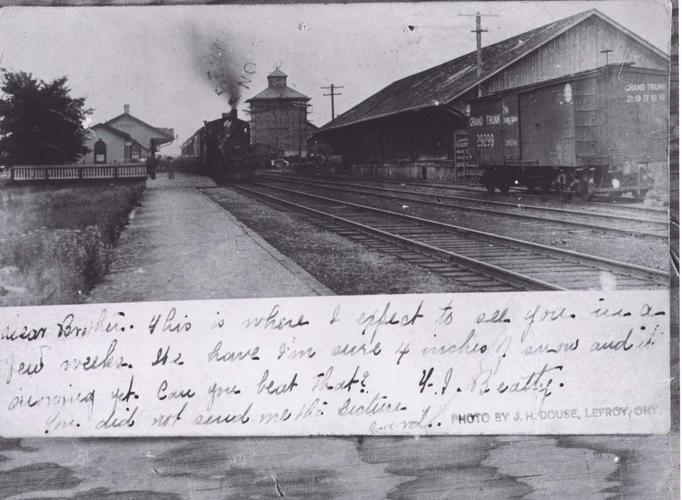 GRAND TRUNK
29299
GRAND TRUNK
29299
29299
Dear Brother. This is where I expect to see you in a
few weeks. We have I'm sure 4 inches of snow and it
snowing yet. Can you beat that? Beatty.
You did not send me the picture
card.
PHOTO BY J. H. DOUSE, LEFROY, ONT.